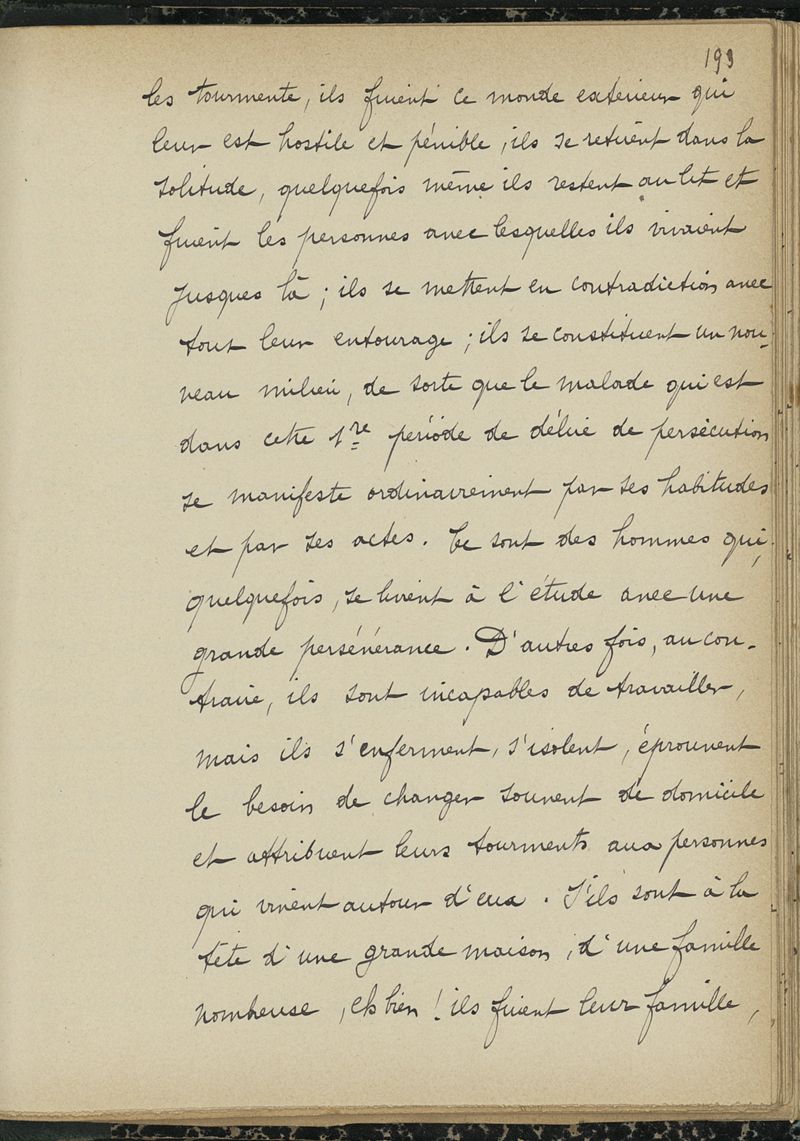 193
les tourmente, ils fuient ce monde extérieur qui
leur est hostile et pénible, ils se retirent dans la
solitude, quelquefois même ils restent au lit et
fuient les personnes avec lesquelles ils vivaient
jusques là ; ils se mettent en contradiction avec
tout leur entourage ; ils se constituent un nou-
veau milieu, de sorte que le malade qui est
dans cette 1re période de délire de persécution
se manifeste ordinairement par ses habitudes
et par ses actes. Ce sont des hommes qui,
quelquefois, se livrent à l'étude avec une
grande persévérance. D'autres fois, au con-
traire, ils sont incapables de travailler,
mais ils s'enferment, s'isolent, éprouvent
le besoin de changer souvent de domicile
et attribuent leurs tourments aux personnes
qui vivent autour d'eux. S'ils sont à la
tête d'une grande maison, d'une famille
nombreuse, eh bien ! ils fuient leur famille,